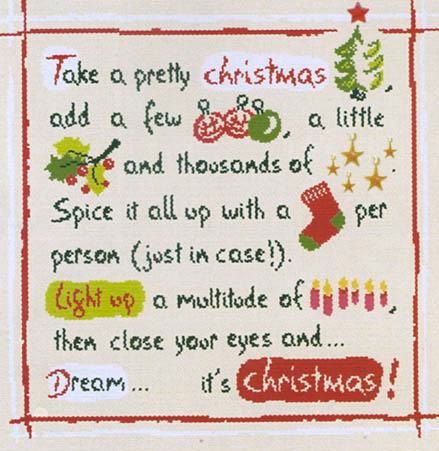 Take a pretty christmas ,
add a few , a little
and thousands of .
Spice it all up with a per
person (just in case!).
Light up a multitude of ,
then close your eyes and...
Dream... it's christmas!